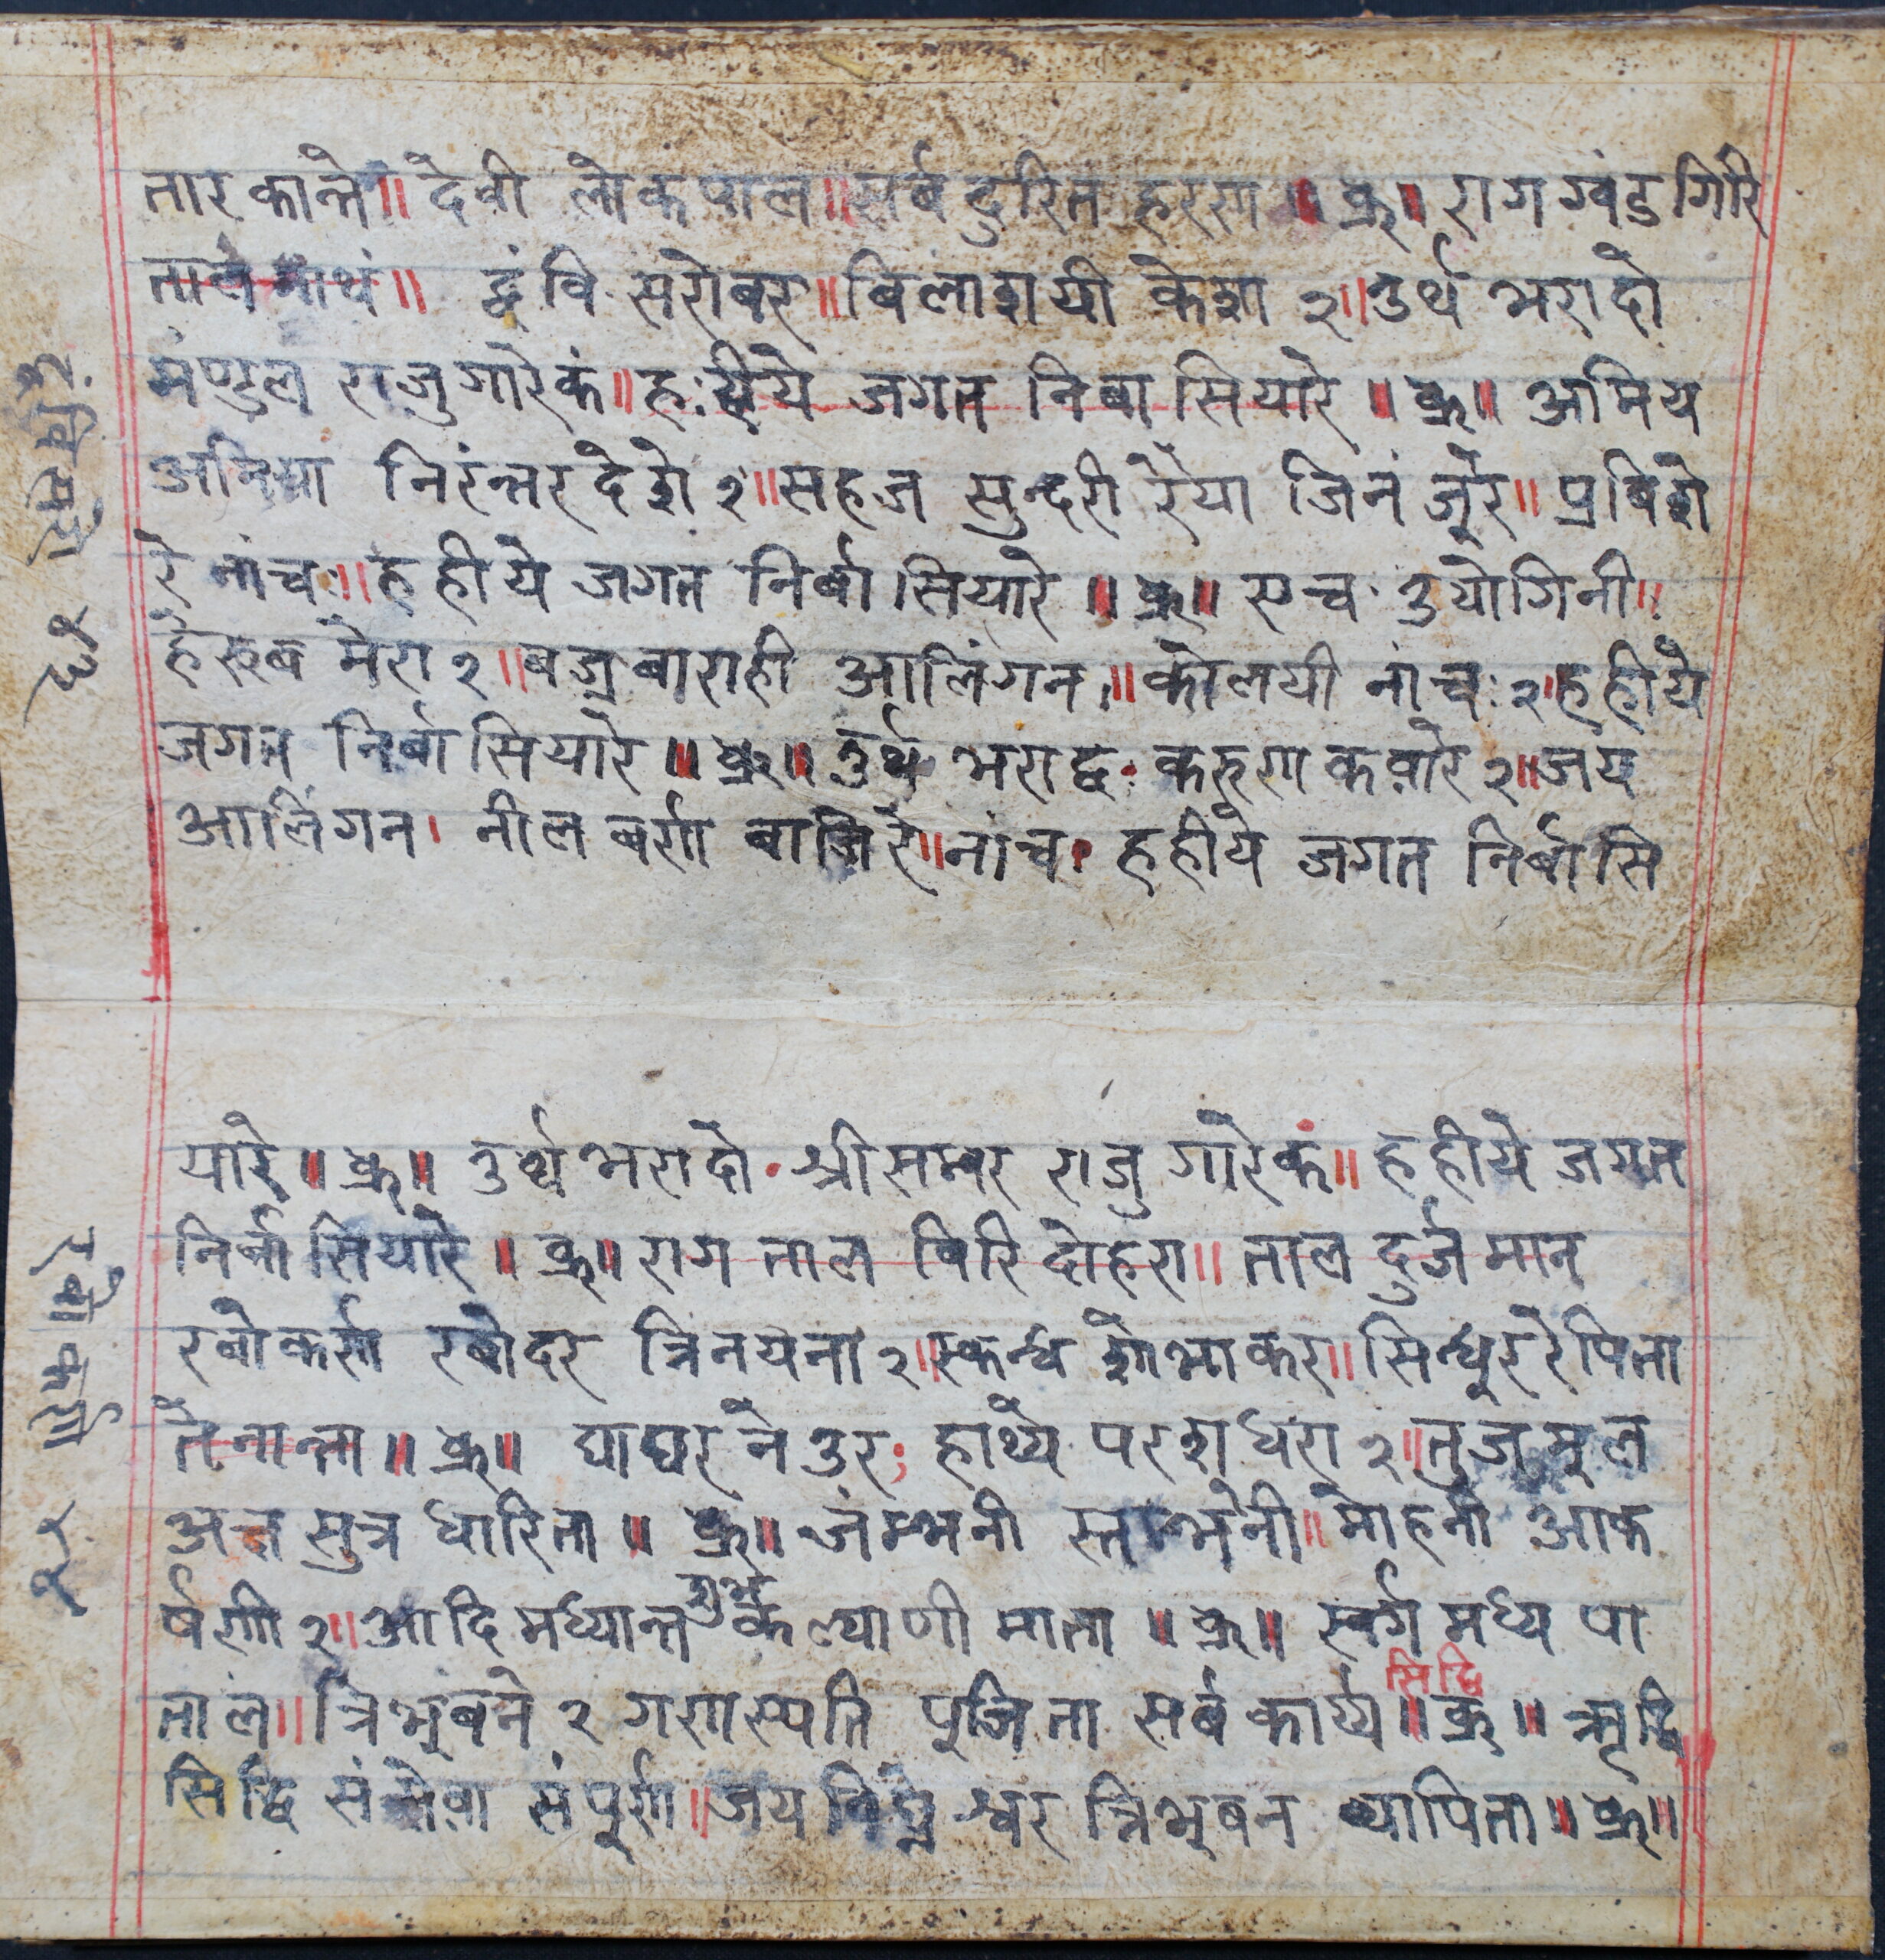 तार कान्ते॥ देवी लोकपाल॥ सर्ब दुरित हरण ॥ ध्रु॥ राग ग्वंड गिरि
ताल माथं॥ द्वंवि सरोबर॥ बिलाशयी केशा २॥ उर्थ भरादो
मंण्डल राजु गारेकं॥ ह:हीये जगत निबासियारे ॥ ध्रु॥ अमिय
अमिया निरंन्तर देशे २॥ सहज सुन्दरी रेया जिनं जुरे॥ प्रबिशे
रे नांच:॥ ह हीये जगत निर्बासियारे ॥ ध्रु॥ सच उयोगिनी॥
हेरुब मेरा २॥ बज्रबाराही आलिंगन॥ कोलयी नांच: २॥ह हीये
जगत निर्बासियारे ॥ ध्रु॥ उर्थ भराद्व करुणा कबारे २॥ जय
आलिंगन। नील बर्ण बाजिरे॥ नांच। ह हीये जगत निर्बासि
द्वंबि सरो ४६
यारे ॥ ध्रु॥ उर्थ भरादो श्रीसम्बर राजु गारेकं॥ ह हीये जगत
निर्बासियारे ॥ ध्रु॥ राग ताल षिरि दोहरा॥ ताल दुर्जमान
रबोकर्ण रबोदर त्रिनयना २॥ स्कन्ध शोभाकरा॥ सिन्धुर रेपिता
तेनान्ता॥ ध्रु॥ घाघर नेउर, हाथ्ये परशु धरा २॥ तुज मूल
अत सुत्र धारिता ॥ ध्रु॥ जंम्भनी स्तम्भेनी॥ मोहनी आक
र्षणी २॥ आदि मध्यान्त शुभ कल्याणी माता ॥ ध्रु॥ स्वर्ग मध्य पा
ताल॥ त्रिभुबने २ गणस्पति पुजिता सर्ब कार्य्य सिद्धि ॥ ध्रु ॥ ऋद्धि
सिद्धि संसेबा संपुर्ण॥ जय बिघ्नेश्वर त्रिभुबन ब्यापिता॥ ध्रु॥
रबोकर्ण